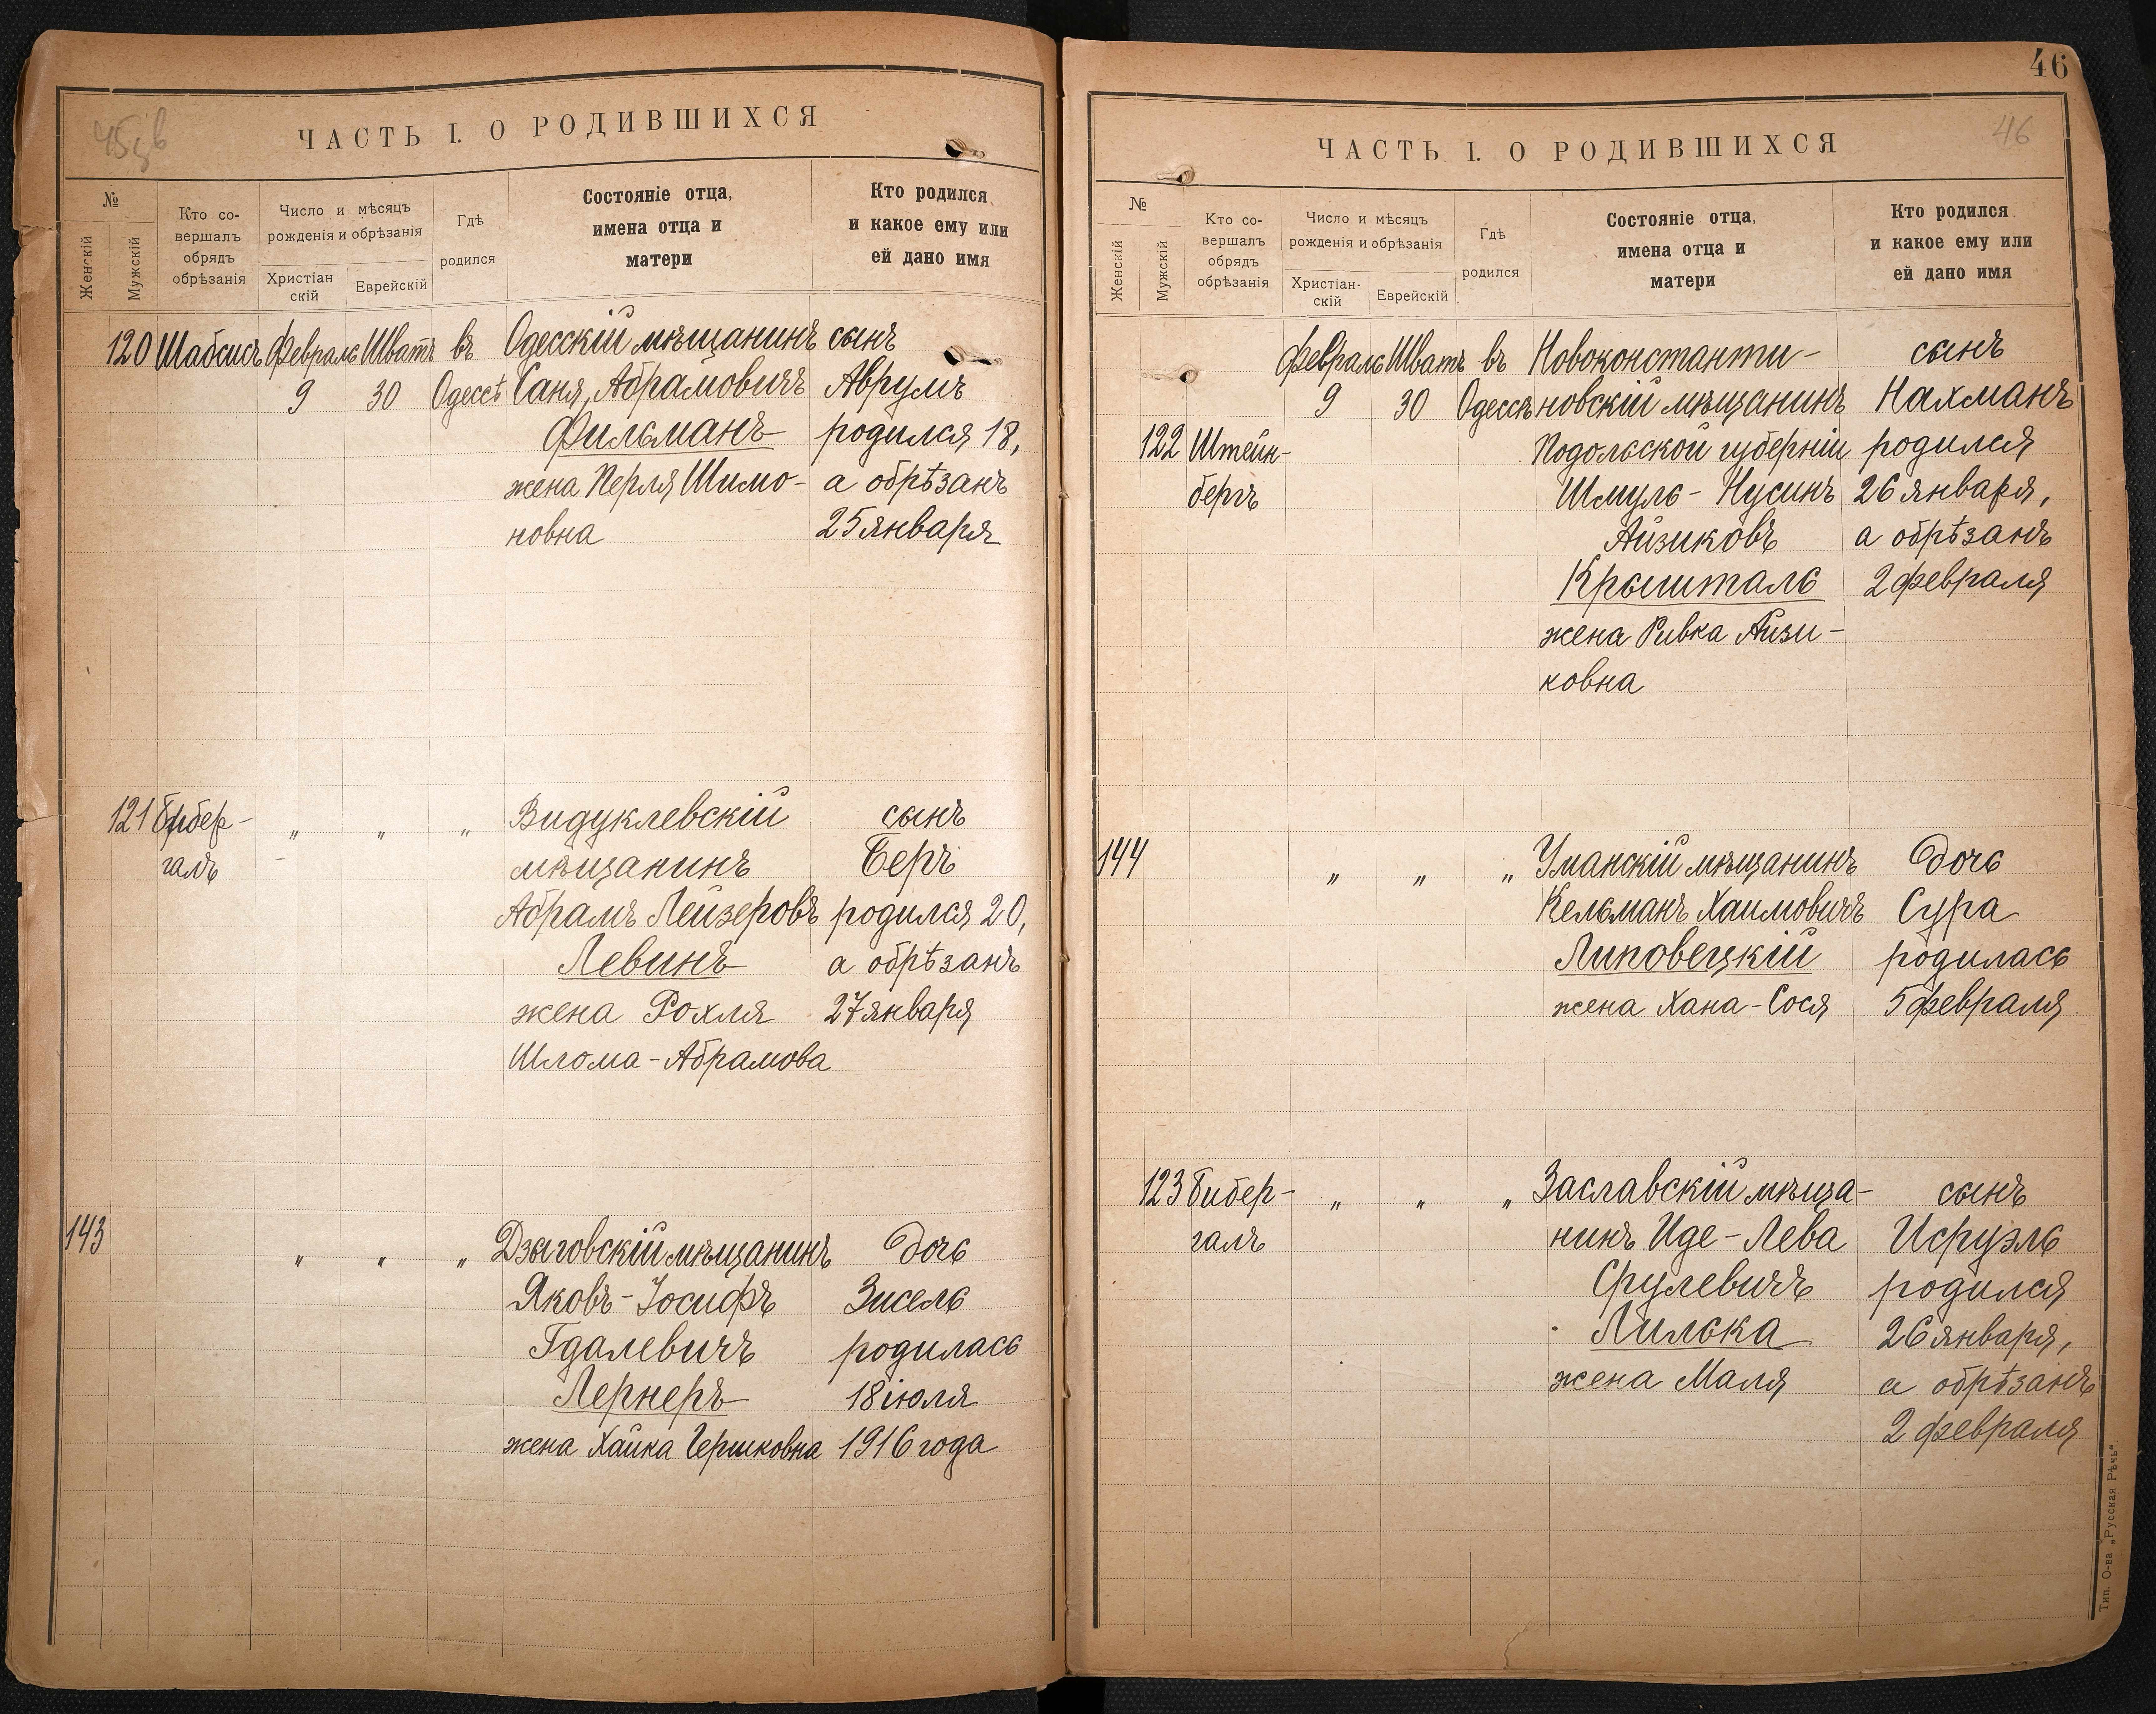 45зв
ЧАСТЬ I. О РОДИВШИХСЯ
№
Женскій
Мужскій
Кто со-
вершалъ
обрядъ
обрѣзанія
Число и мѣсяцъ
рожденія и обрѣзанія
Христіан
скій
Еврейскій
Гдѣ
родился
Состояніе отца,
имена отца и
матери
Кто родился
и какое ему или
ей дано имя
120 Шабсисъ Февраль Шватъ въ Одесскій мѣщанинъ сынъ
9 30 Одессѣ Саня, Абрамовичъ Аврумъ
Фильманъ родился 18,
жена Перля Шимо- а обрѣзанъ
новна 25 января
121 Бибер- " " " Видуклевскій сынъ
галъ мѣщанинъ Беръ
Абрамъ Лейзеровъ родился 20,
Левинъ а обрѣзанъ
жена Рохля 27 января
Шлома-Абрамова
143 " " " Дзыговскій мѣщанинъ дочь
Яковъ-Іосифъ Зисель
Гдалевичъ родилась
Лернеръ 18 іюля
жена Хайка Гершковна 1916 года
46
46
ЧАСТЬ I. О РОДИВШИХСЯ
№
Женскій
Мужскій
Кто со-
вершалъ
обрядъ
обрѣзанія
Число и мѣсяцъ
рожденія и обрѣзанія
Христіан-
скій
Еврейскій
Гдѣ
родился
Состояніе отца,
имена отца и
матери
Кто родился
и какое ему или
ей дано имя
Февраль Шватъ въ Новоконстанти- сынъ
9 30 Одессѣ новскій мѣщанинъ Нахманъ
122 Штейн- Подольской губерніи родился
бергъ Шмуль-Нусинъ 26 января,
Айзиковъ а обрѣзанъ
Крышталь 2 февраля
жена Ривка Айзи-
ковна
144 " " " Уманскій мѣщанинъ дочь
Кельманъ Хаимовичъ Сура
Липовецкій родилась
жена Хана-Сося 5 февраля
123 Бибер- " " " Заславскій мѣща- сынъ
галъ нинъ Иде-Лева Исруэль
Срулевичъ родился
Лилька 26 января,
жена Маля а обрѣзанъ
2 февраля
Тип. О-ва „Русская Рѣчь".